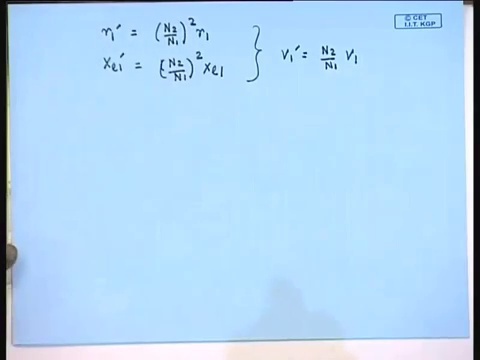 © CET
I.I.T. KGP
r₁' = (N₂/N₁)² r₁
xₑ₁' = (N₂/N₁)² xₑ₁ } V₁' = N₂/N₁ V₁